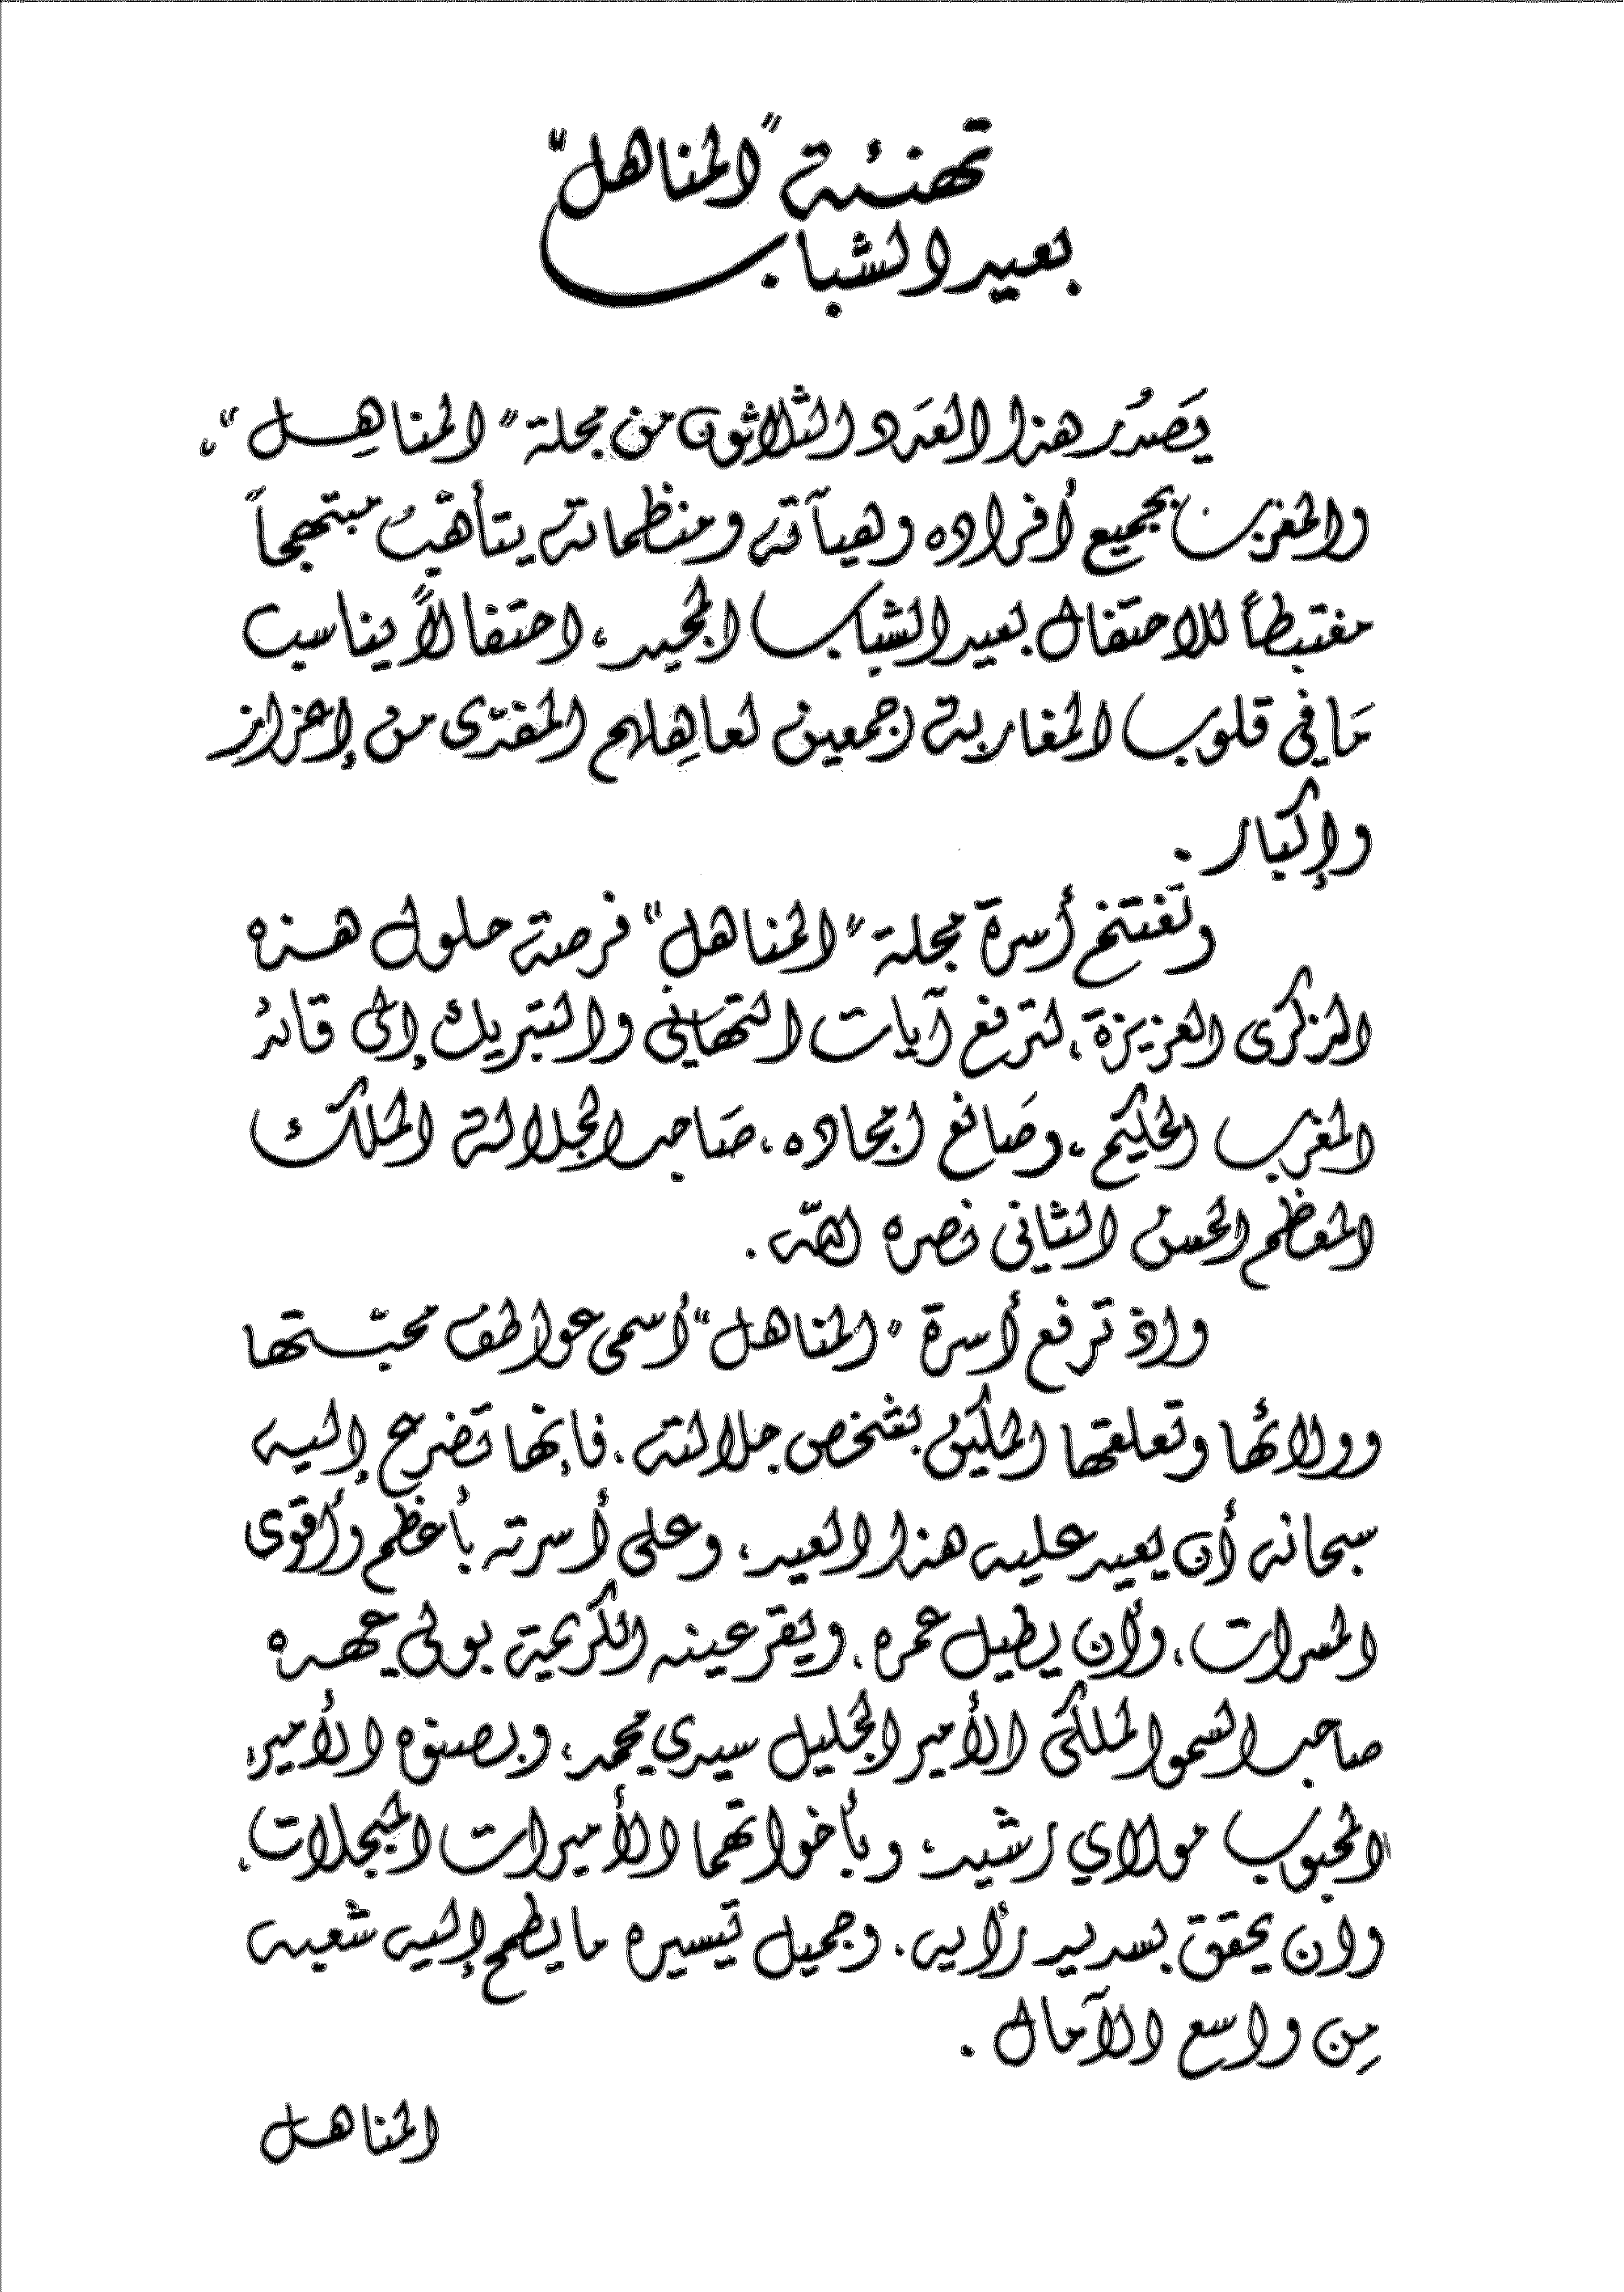 تهنئة "المناهل"
بعيد الشباب
يَصْدُر هذا العَدد الثلاثون من مجلة "المناهِل"،
والمغرب بجميع أفراده وهيآته ومنظماته يتأهّبُ مبتهجاً
مغتبطاً للاحتفال بعيد الشباب المجيد، احتفالاً يناسب
مَا في قلوب المغاربة اجمعين لعاهِلهم المفدّى من إعزاز
وإكبار.
وتغتنم أسرة مجلة "المناهل" فرصة حلول هذه
الذكرى العزيزة، لترفع آيات التهاني والتبريك إلى قائد
المغرب الحكيم، وصَانع امجاده، صَاحب الجلالة الملك
المعظم الحسن الثاني نصره الله.
واذ ترفع أسرة "المناهل" أسمى عواطف محبّتها
وولائها وتعلقها المكين بشخص جلالته، فإنها تضرع إليه
سبحانه أن يعيد عليه هذا العيد، وعلى أسرته بأعظم وأقوى
المسرات، وأن يطيل عمره، ويقر عينه الكريمة بولي عهده
صاحب السمو الملكي الأمير الجليل سيدي محمد، وبصنوه الأمير
المحبوب مولاي رشيد، وبأخواتهما الأميرات المبجلات،
وان يحقق بسديد رأيه، وجميل تيسيره ما يطمح إليه شعبه
مِن واسع الآمال.
المناهل